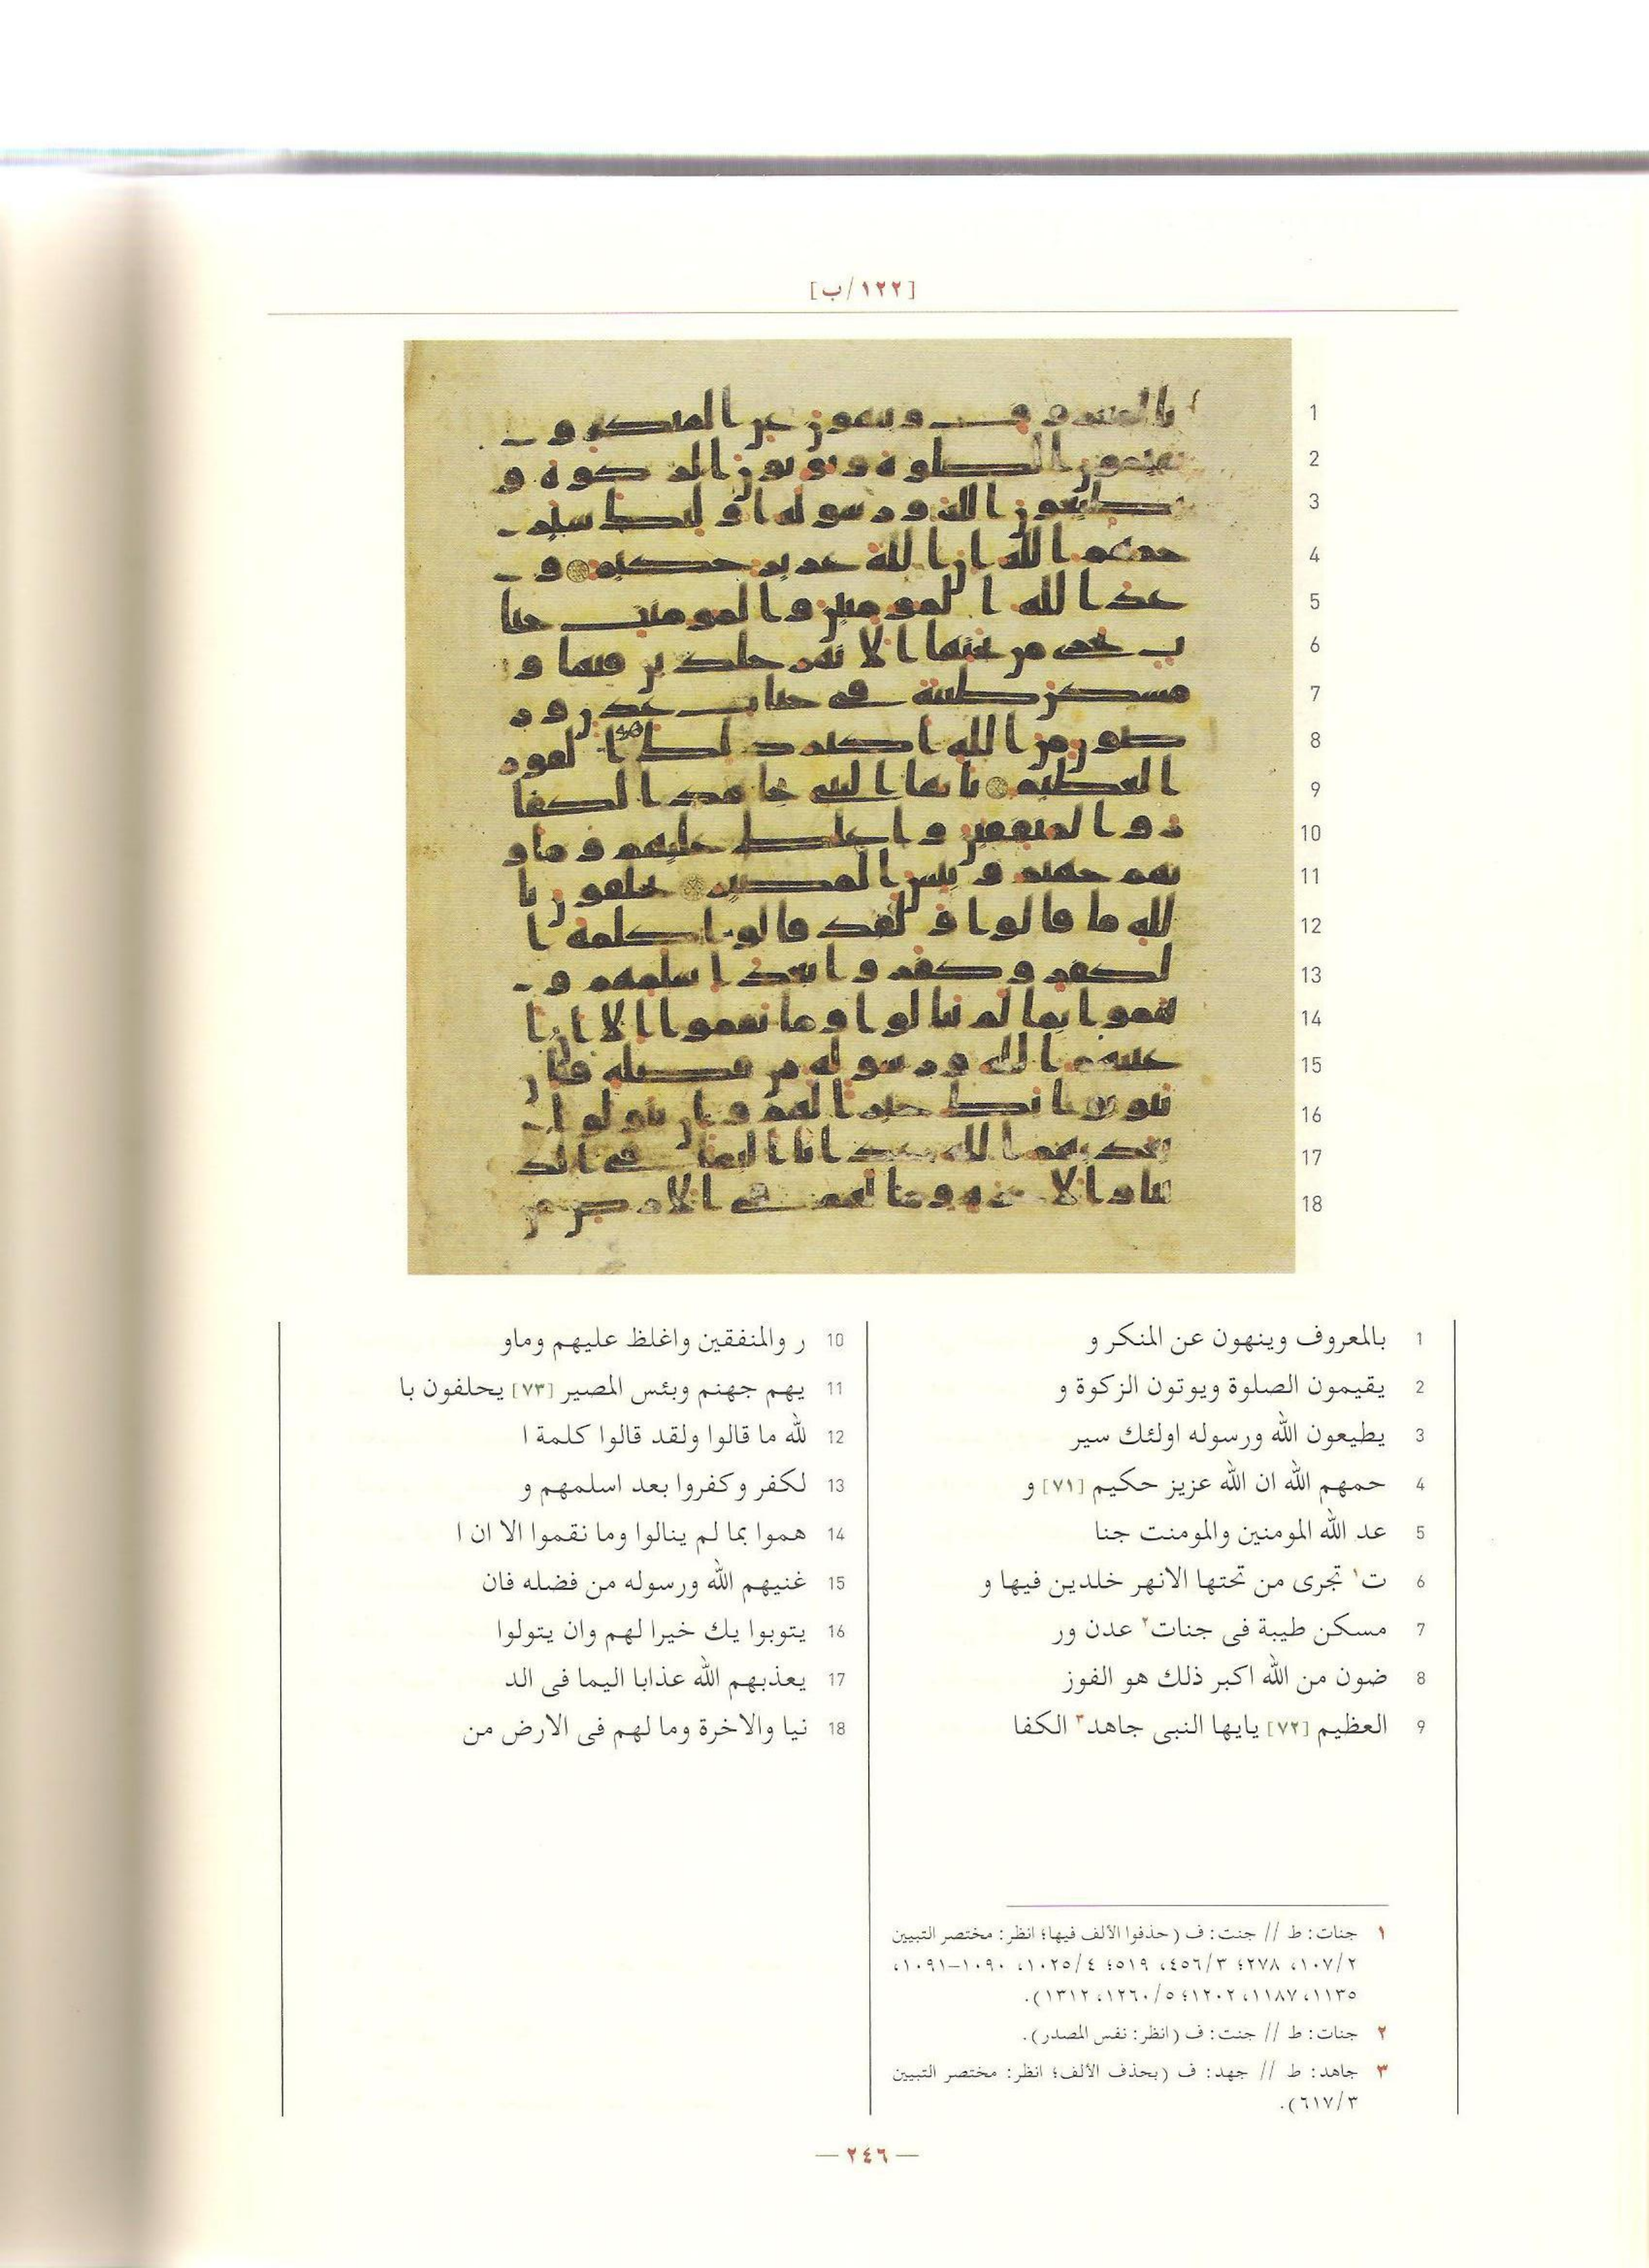 [١٢٢/ب]
1
2
3
4
5
6
7
8
9
10
11
12
13
14
15
16
17
18
1 بالمعروف وينهون عن المنكر و
2 يقيمون الصلوة ويوتون الزكوة و
3 يطيعون الله ورسوله اولئك سير
4 حمهم الله ان الله عزيز حكيم [٧١] و
5 عد الله المومنين والمومنت جنا
6 ت١ تجرى من تحتها الانهر خلدين فيها و
7 مسكن طيبة فى جنات٢ عدن ور
8 ضون من الله اكبر ذلك هو الفوز
9 العظيم [٧٢] يايها النبى جاهد٣ الكفا
10 ر والمنفقين واغلظ عليهم وماو
11 يهم جهنم وبئس المصير [٧٣] يحلفون با
12 لله ما قالوا ولقد قالوا كلمة ا
13 لكفر وكفروا بعد اسلمهم و
14 هموا بما لم ينالوا وما نقموا الا ان ا
15 غنيهم الله ورسوله من فضله فان
16 يتوبوا يك خيرا لهم وان يتولوا
17 يعذبهم الله عذابا اليما فى الد
18 نيا والاخرة وما لهم فى الارض من
١ جنات: ط // جنت: ف (حذفوا الألف فيها؛ انظر: مختصر التبيين
١٠٧/٢، ٢٧٨؛ ٤٥٦/٣، ٥١٩؛ ١٠٢٥/٤، ١٠٩٠-١٠٩١،
١١٣٥، ١١٨٧، ١٢٠٢؛ ١٢٦٠/٥، ١٣١٢).
٢ جنات: ط // جنت: ف (انظر: نفس المصدر).
٣ جاهد: ط // جهد: ف (بحذف الألف؛ انظر: مختصر التبيين
٦١٧/٣).
— ٢٤٦ —